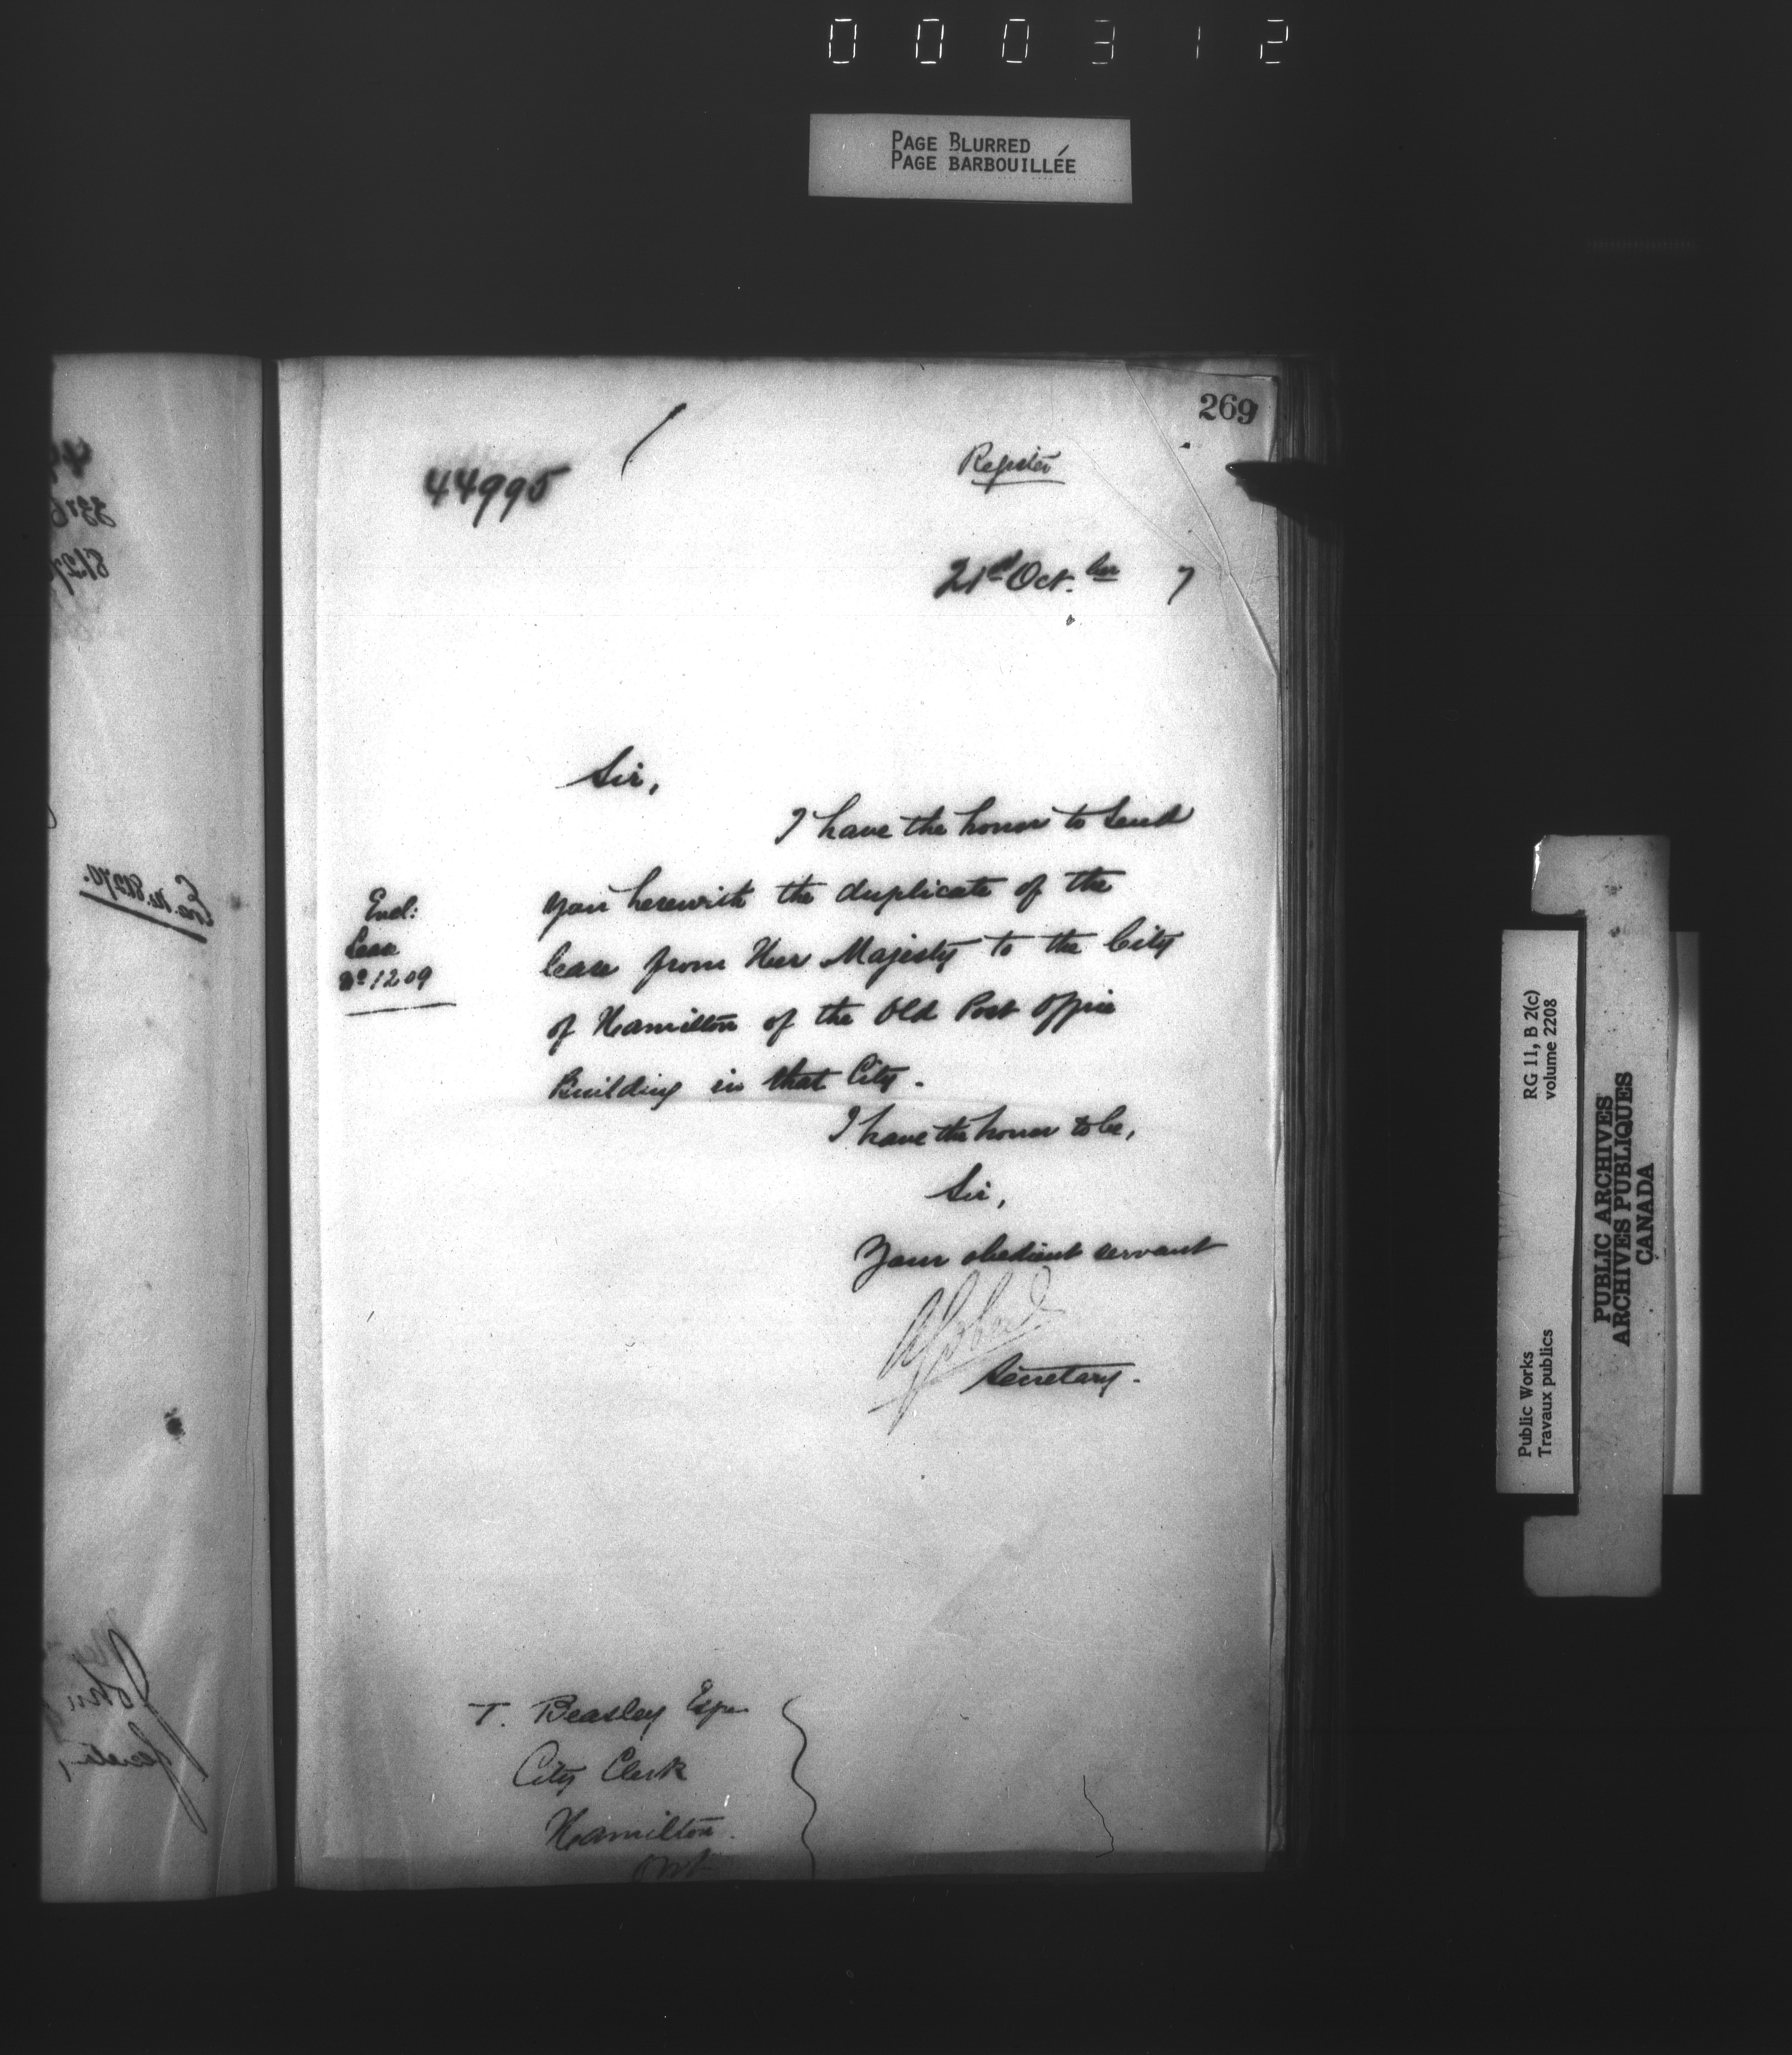 000312
PAGE BLURRED
PAGE BARBOUILLÉE
269
44995
Register
21st Oct.ber 7
Sir,
I have the honor to send
you herewith the duplicate of the
lease from Her Majesty to the City
of Hamilton of the Old Post Office
Building in that City.
Encl:
Lease
No 1209
I have the honor to be,
Sir,
Your obedient servant
Secretary.
T. Beasley Esqre
City Clerk
Hamilton.
Ont
Public Works
Travaux publics
RG 11, B 2(c)
volume 2208
PUBLIC ARCHIVES
ARCHIVES PUBLIQUES
CANADA